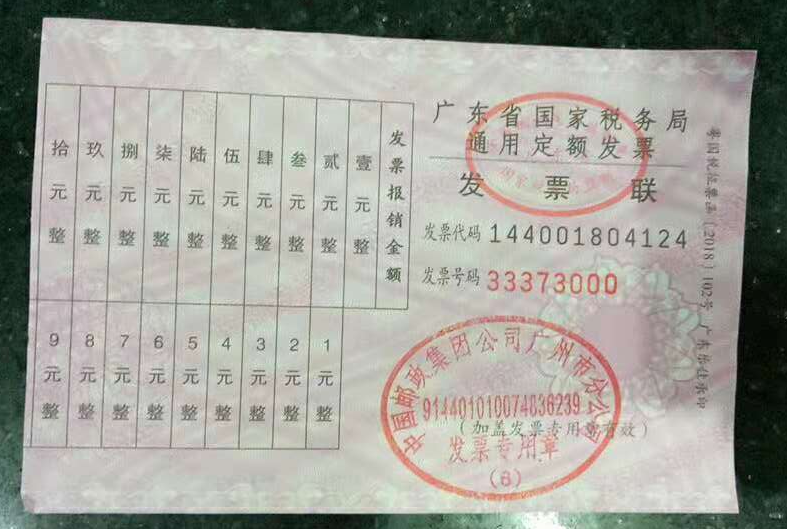 广东省国家税务局
通用定额发票
发票联
发票代码 144001804124
发票号码 33373000
中国邮政集团公司广州市分公司
914401010074836239
(加盖发票专用章有效)
发票专用章
(6)
发票报销金额
壹元整
贰元整
叁元整
肆元整
伍元整
陆元整
柒元整
捌元整
玖元整
拾元整
1元整
2元整
3元整
4元整
5元整
6元整
7元整
8元整
9元整